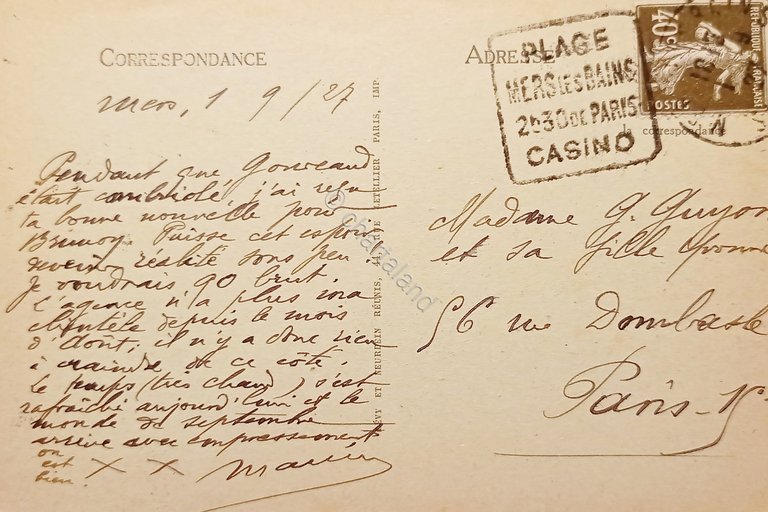 CORRESPONDANCE
Mers, 1 9/27
Pendant que Gouveaud
était cambriolé, j'ai reçu
ta bonne nouvelle pour
Brunoy. Puisse cet espoir
devenir réalité sous peu.
Je voudrais 90 brut.
L'agence n'a plus ma
clientèle depuis le mois
d'Août, il n'y a donc rien
à craindre de ce côté.
Le temps (très chaud) s'est
rafraîchi aujourd'hui et le
monde de septembre
arrive avec empressement
on
est
bien. X X
LÉVY ET NEURDEIN RÉUNIS, 44, RUE LETELLIER PARIS, IMP.
© chazaland
ADRESSE
PLAGE
MERS LES BAINS
2h30 DE PARIS
CASINO
40c
RÉPUBLIQUE FRANÇAISE
POSTES
la correspondance
Madame G. Guyon
et sa fille Yvonne
56 rue Dombasle
Paris-15